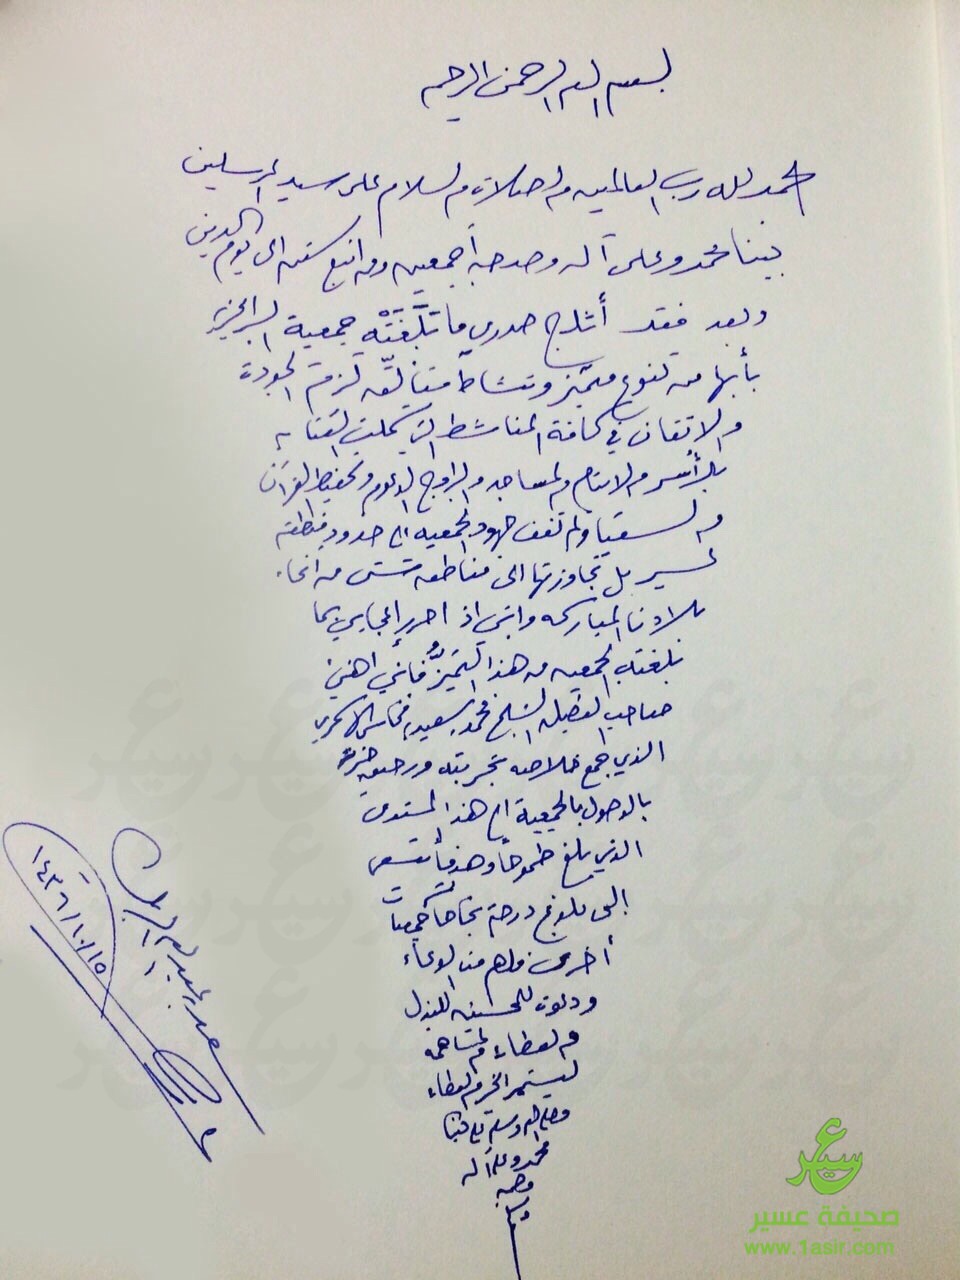 بسم الله الرحمن الرحيم
الحمد لله رب العالمين والصلاة والسلام على سيد المرسلين
نبينا محمد وعلى آله وصحبه أجمعين ومن اتبع سنته الى يوم الدين
وبعد فقد أثلج صدري ما بَلَغَتْه جمعية البر الخيرية
بأبها من تنوع مميّز ونشاط متألّق لزم الجودة
والاتقان في كافة المناشط التي كالعناية
بالأسر والايتام والمساجد والزواج والدعوة وتحفيظ القرآن
والسقيا ولم تقف جهود الجمعيه الى حدود منطقة
عسير بل تجاوزتها الى مناطق شتى من أنحاء
بلادنا المباركه وانني اذ احرر إعجابي بما
بلغته الجمعيه من هذا التميُّز فأنني اهنئ
صاحب الفضيله الشيخ محمد بن سعيد بن
الذي جمع خلاصة تجربته ورحيق
بالوصول بالجمعية الى هذا المستوى
الذي بلغ طموحاً وهدفاً تسعى
إلى بلوغ درجة نجاحها جمعيات
أخرى فلهم منا الدعاء
ودعوت للمحسنين للبذل
والعطاء والمساهمه
ليستمر الخير والعطاء
وصلى الله وسلم على نبينا
محمد وعلى آله
وصحبه
سعد بن عبدالله
١٤٣٦/١٠/١٥
عسير
صحيفة عسير
www.1asir.com